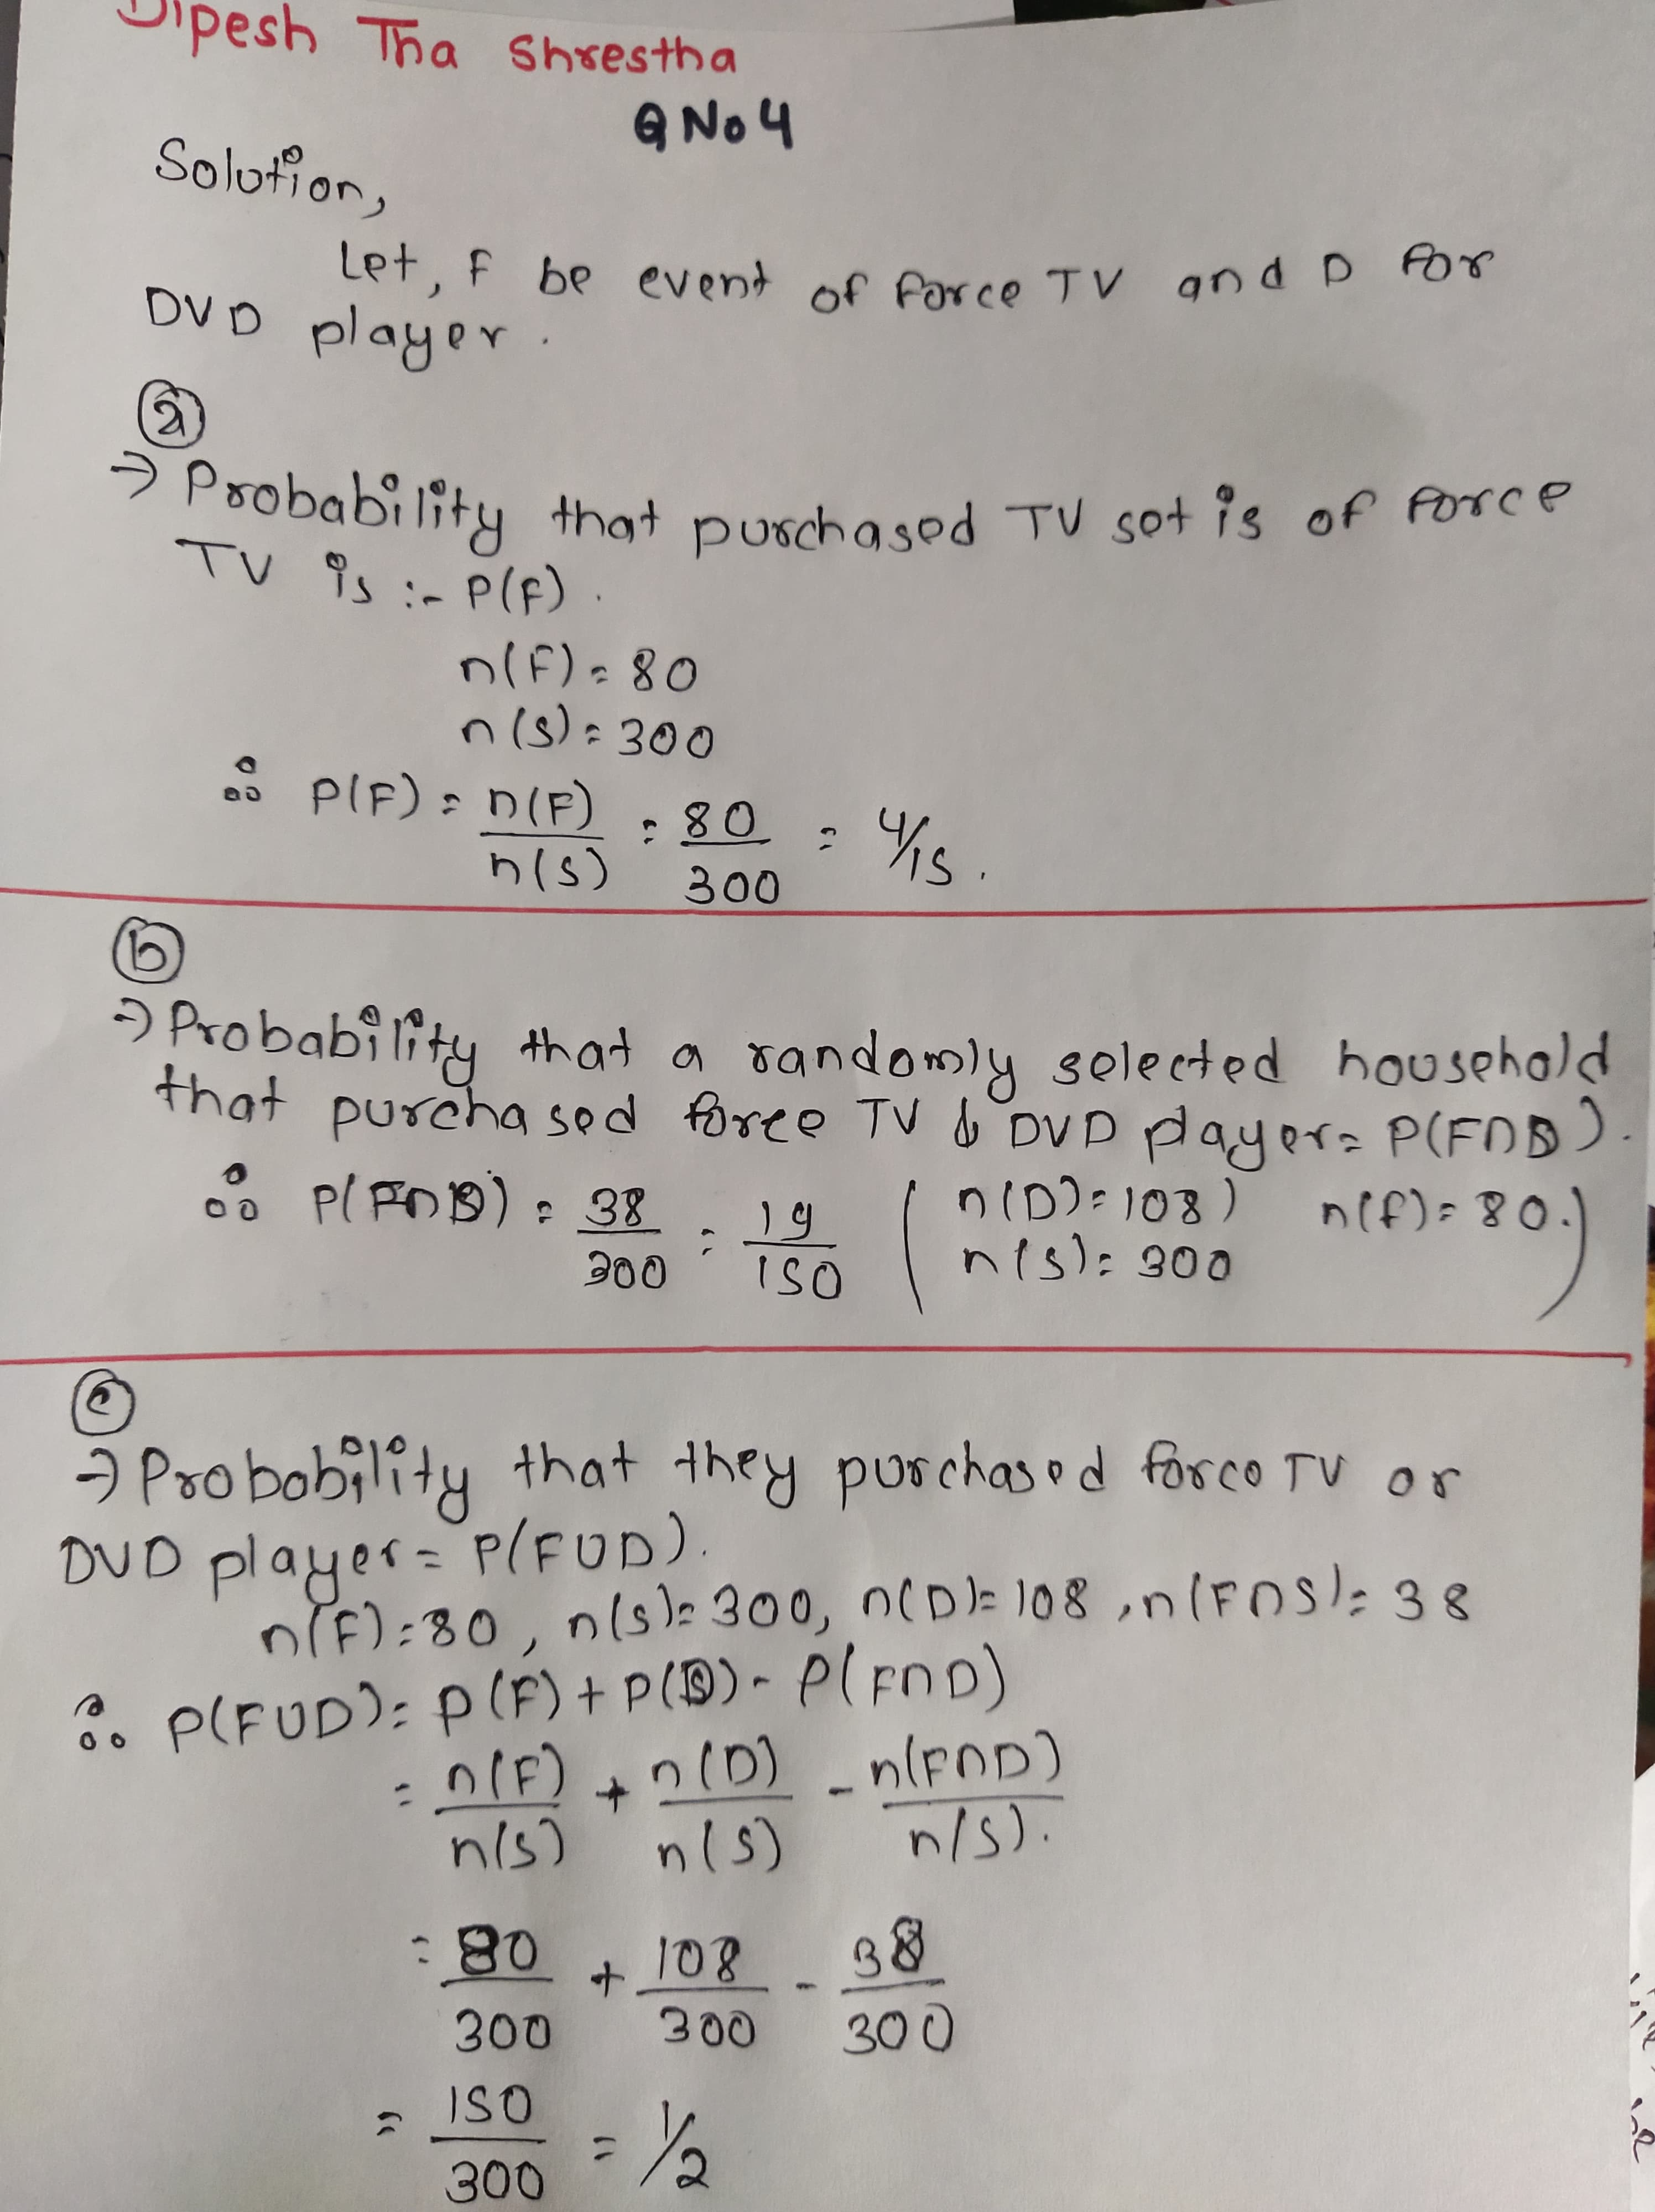 Dipesh Tha Shrestha
Q No 4
Solution,
Let, F be event of force TV and D for
DVD player.
(a)
→ Probability that purchased TV set is of force
TV is :- P(F).
n(F) = 80
n(S) = 300
∴ P(F) = n(F)/n(S) = 80/300 = 4/15.
(b)
→ Probability that a randomly selected household
that purchased force TV & DVD player = P(F∩D).
∴ P(F∩D) = 38/300 = 19/150 ( n(D) = 108) n(f) = 80.)
n(s) = 300
(c)
→ Probobility that they purchased force TV or
DVD player = P(FUD).
n(F) = 80, n(s) = 300, n(D) = 108, n(F∩S) = 38
∴ P(FUD) = P(F) + P(D) - P(F∩D)
= n(F)/n(S) + n(D)/n(S) - n(F∩D)/n(S).
= 80/300 + 108/300 - 38/300
= 150/300 = 1/2